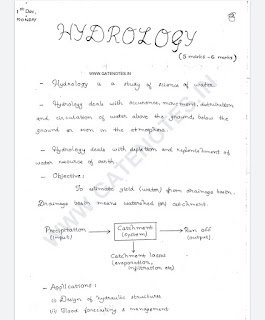 1st Dec,
MONDAY
HYDROLOGY
(5 marks - 6 marks)
WWW.GATENOTES.IN
- Hydrology is a study of science of water.
- Hydrology deals with occurance, movement, distribution
and circulation of water above the ground, below the
ground or even in the atmosphere.
- Hydrology deals with depletion and replenishment of
water resource of earth.
- Objective:
To estimate yield (water) from drainage basin.
Drainage basin means watershed or catchment.
Precipitation → Catchment → Run off
(input) (system) (output)
Catchment losses
(evaporation,
infiltration etc)
- Applications:
i) Design of hydraulic structures
ii) Flood forecasting & management
WWW.GATENOTES.IN